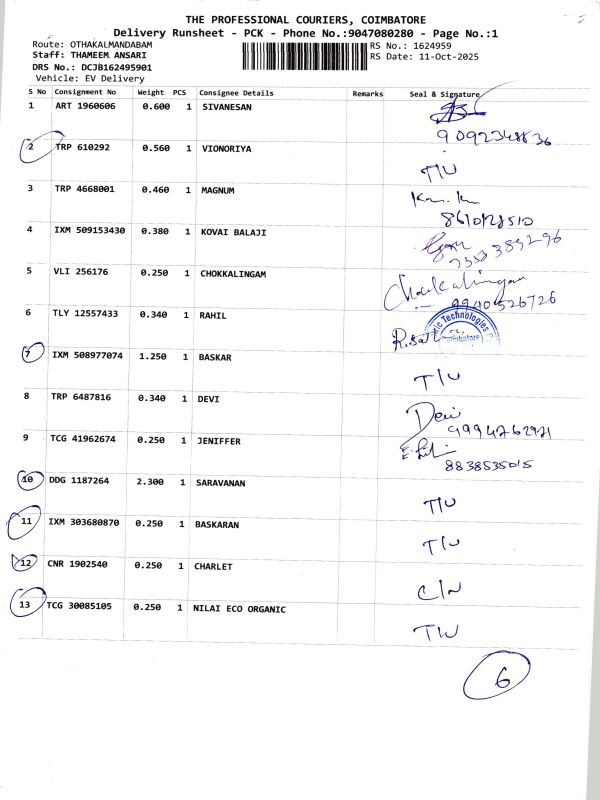 THE PROFESSIONAL COURIERS, COIMBATORE
Delivery Runsheet - PCK - Phone No.:9047080280 - Page No.:1
Route: OTHAKALMANDABAM RS No.: 1624959
Staff: THAMEEM ANSARI RS Date: 11-Oct-2025
DRS No.: DCJB162495901
Vehicle: EV Delivery
S No Consignment No Weight PCS Consignee Details Remarks Seal & Signature
1 ART 1960606 0.600 1 SIVANESAN
9092348836
2 TRP 610292 0.560 1 VIONORIYA T/U
3 TRP 4668001 0.460 1 MAGNUM
4 IXM 509153430 0.380 1 KOVAI BALAJI
5 VLI 256176 0.250 1 CHOKKALINGAM Chokkalingam
9940526726
6 TLY 12557433 0.340 1 RAHIL
Technologies
Coimbatore
7 IXM 508977074 1.250 1 BASKAR T/U
8 TRP 6487816 0.340 1 DEVI Devi
9 TCG 41962674 0.250 1 JENIFFER
8838535015
10 DDG 1187264 2.300 1 SARAVANAN T/U
11 IXM 303680870 0.250 1 BASKARAN T/U
12 CNR 1902540 0.250 1 CHARLET C/N
13 TCG 30085105 0.250 1 NILAI ECO ORGANIC T/U
6